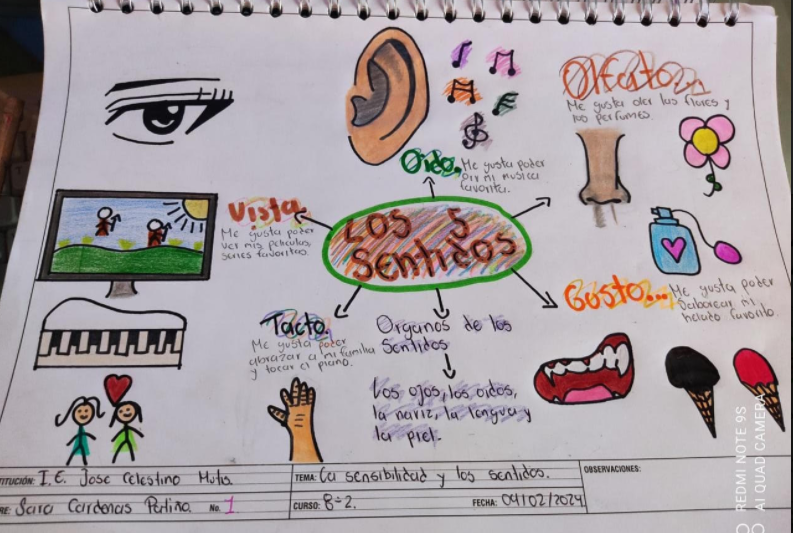 Olfato
Me gusta oler las flores y
los perfumes.
Oido.
Me gusta poder
oir mi musica
favorita.
Vista.
Me gusta poder
ver mis peliculas,
series favoritas.
LOS 5
Sentidos
Gusto...
Me gusta poder
saborear mi
helado favorito.
Tacto.
Me gusta poder
abrazar a mi familia
y tocar el piano.
Organos de los
Sentidos
Los ojos, los oidos,
la nariz, la lengua y
la piel.
TITUCIÓN: I.E. Jose Celestino Mutis.
TEMA: La sensibilidad y los sentidos.
OBSERVACIONES:
RE: Sara Cardenas No. 1
CURSO: 8-2.
FECHA: 04/02/2024
REDMI NOTE 9S
AI QUAD CAMERA